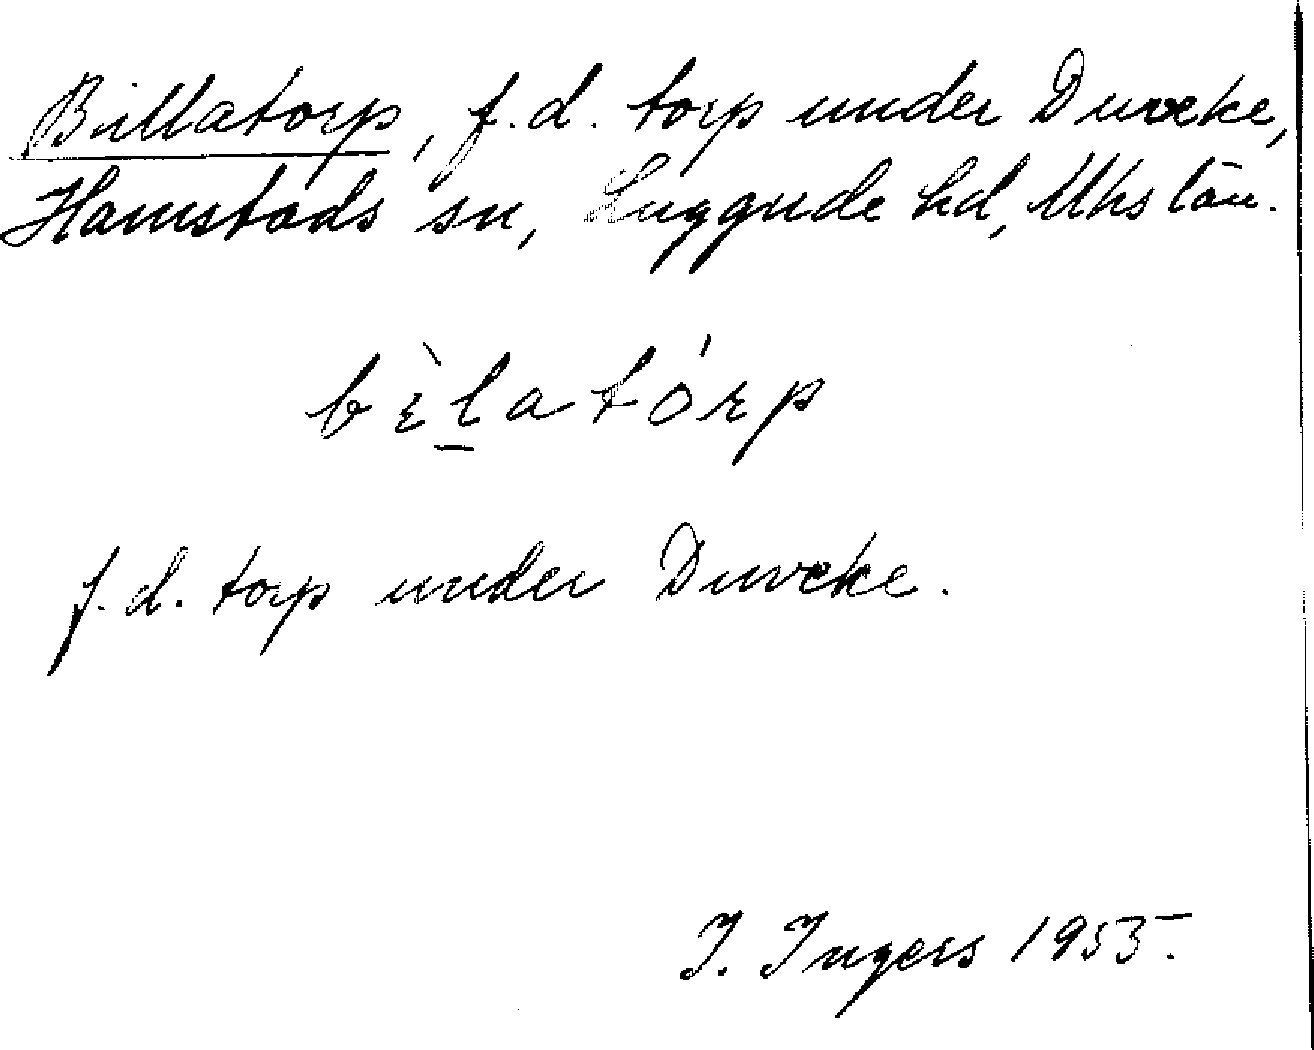 Billatorp, f.d. torp under Duveke,
Harnstads sn, Luggude hd, Mhs län.
bèlatórp
f.d. torp under Duveke.
I. Ingers 1955.